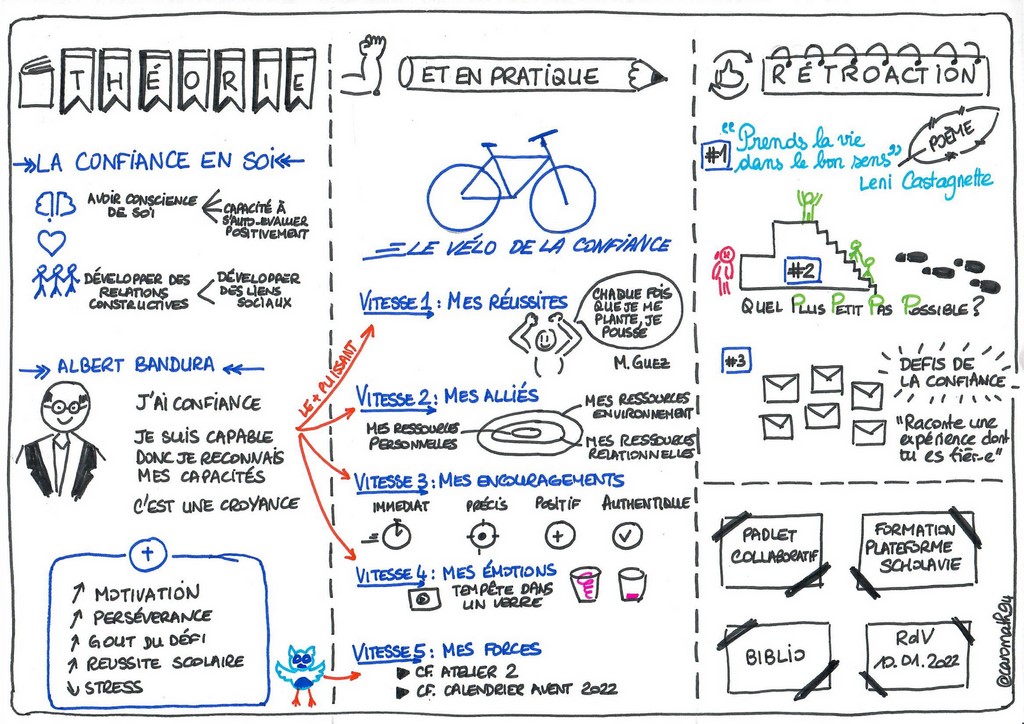 THÉORIE
LA CONFIANCE EN SOI
AVOIR CONSCIENCE
DE SOI
CAPACITÉ À
S'AUTO-EVALUER
POSITIVEMENT
DÉVELOPPER DES
RELATIONS
CONSTRUCTIVES
DÉVELOPPER
DES LIENS
SOCIAUX
ALBERT BANDURA
J'AI CONFIANCE
JE SUIS CAPABLE
DONC JE RECONNAIS
MES CAPACITÉS
C'EST UNE CROYANCE
+
↗ MOTIVATION
↗ PERSÉVERANCE
↗ GOUT DU DÉFI
↗ REUSSITE SCOLAIRE
↘ STRESS
ET EN PRATIQUE
LE VÉLO DE LA CONFIANCE
LE + PUISSANT
VITESSE 1 : MES RÉUSSITES
CHAQUE FOIS
QUE JE ME
PLANTE, JE
POUSSE
M. GUEZ
VITESSE 2 : MES ALLIÉS
MES RESSOURCES
PERSONNELLES
MES RESSOURCES
ENVIRONNEMENT
MES RESSOURCES
RELATIONNELLES
VITESSE 3 : MES ENCOURAGEMENTS
IMMÉDIAT PRÉCIS POSITIF AUTHENTIQUE
VITESSE 4 : MES ÉMOTIONS
TEMPÊTE DANS
UN VERRE
VITESSE 5 : MES FORCES
CF. ATELIER 2
CF. CALENDRIER AVENT 2022
RÉTROACTION
#1
"Prends la vie
dans le bon sens"
Leni Castagnette
POÈME
#2
QUEL PLUS PETIT PAS POSSIBLE ?
#3
DEFIS DE
LA CONFIANCE
"Raconte une
expérience dont
tu es fièr·e"
PADLET
COLLABORATIF
FORMATION
PLATEFORME
SCHOLAVIE
BIBLIO
RdV
10.01.2022
@caromath94